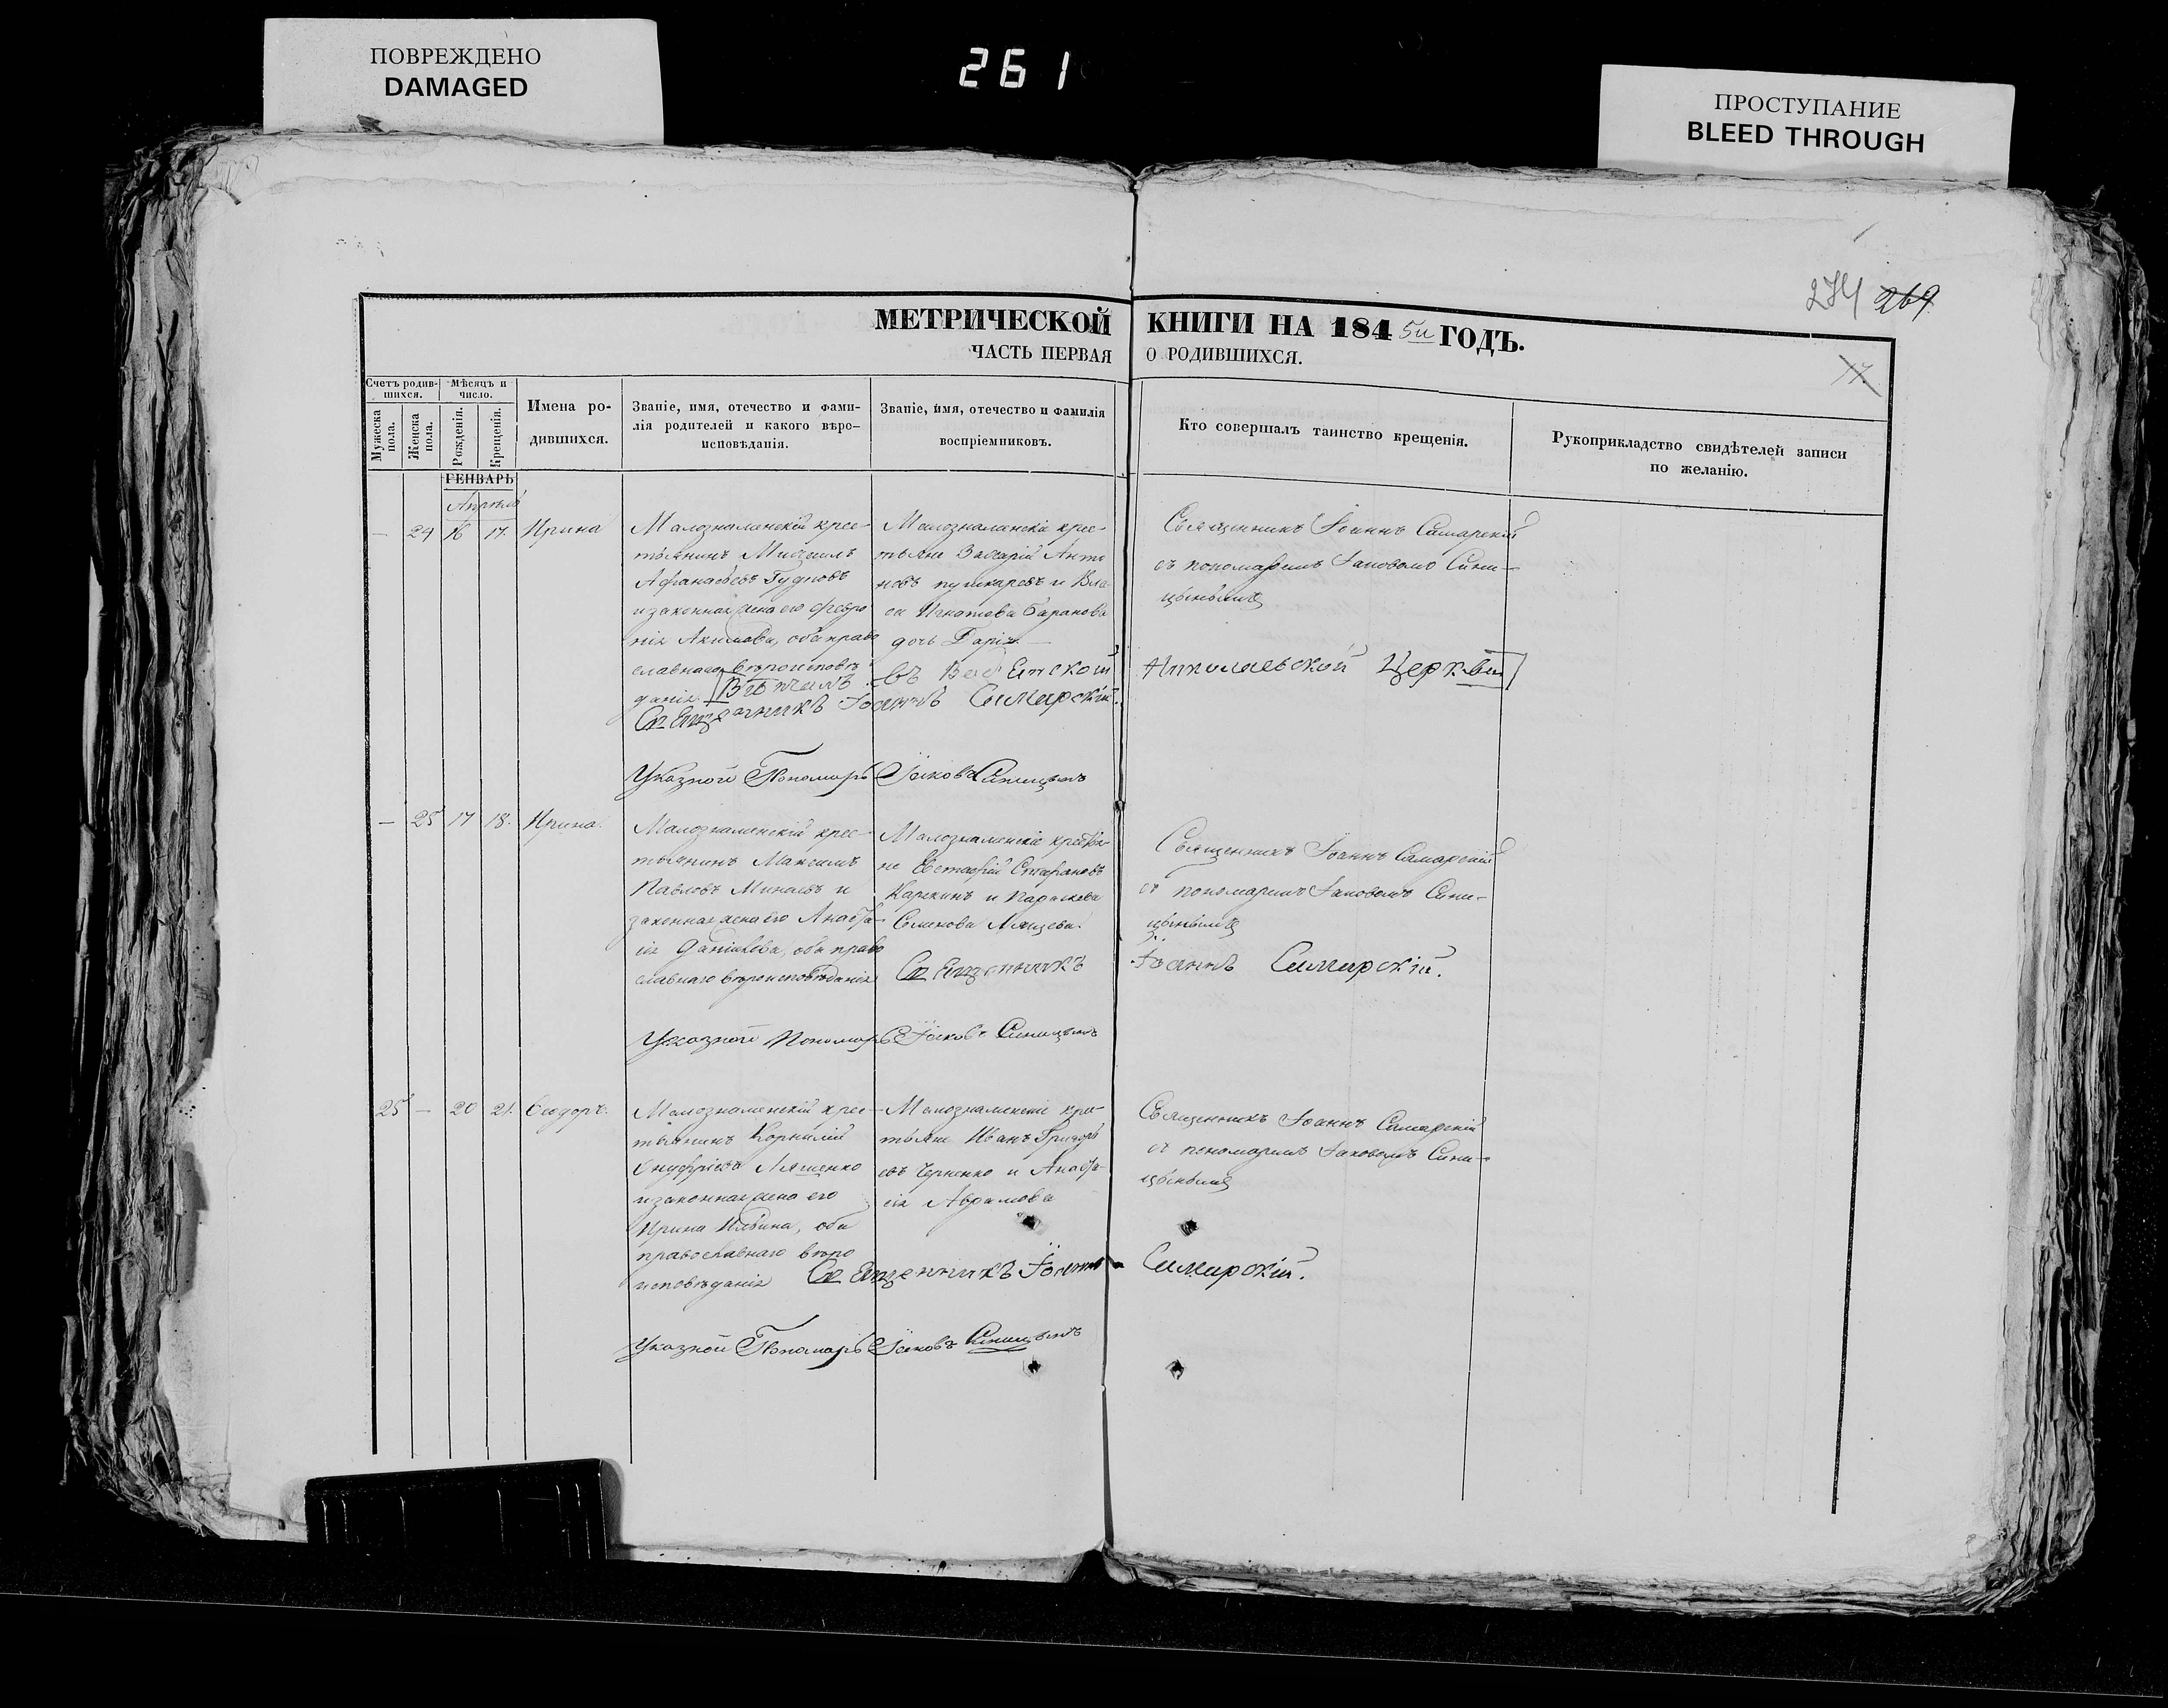 ПОВРЕЖДЕНО
DAMAGED
261
ПРОСТУПАНИЕ
BLEED THROUGH
274 269
МЕТРИЧЕСКОЙ КНИГИ НА 1845й ГОДЪ.
ЧАСТЬ ПЕРВАЯ О РОДИВШИХСЯ.
17
Счетъ родив-
шихся.
Мужеска
пола.
Женска
пола.
Мѣсяцъ и
число.
Рожденія.
Крещенія.
Имена ро-
дившихся.
Званіе, имя, отечество и фами-
лія родителей и какого вѣро-
исповѣданія.
Званіе, имя, отечество и фамилія
воспріемниковъ.
Кто совершалъ таинство крещенія.
Рукоприкладство свидѣтелей записи
по желанію.
ГЕНВАРЬ
Апрѣль
— 24 16 17. Ирина
Малознаменскій крес-
тьянинъ Михаилъ
Афанасьевъ Гудковъ
и законная жена его Февро
нія Акимова, оба право
славнаго вѣроисповѣ
данія.
Малознаменскіе крес-
тьяне Захарій Анто
новъ Пушкаревъ и Вла-
са Игнатова Баранова
дочь Дарія
Священникъ Іоаннъ Самарскій
съ пономаремъ Іаковомъ Сини-
цынымъ
Николаевской Церкви
Священникъ Іоаннъ Самарскій.
Указной Пономарь Іаковъ Синицынъ
— 25 17 18. Ирина.
Малознаменскій крес-
тьянинъ Максимъ
Павловъ Минаевъ и
законная жена его Анаста-
ія Даніилова, оба право
славнаго вѣроисповѣданія
Малознаменскіе крестья-
не Евстафій Стефановъ
Карякинъ и Параскева
Семенова
Священникъ Іоаннъ Самарскій
съ пономаремъ Іаковомъ Сини-
цынымъ
Священникъ Іоаннъ Самарскій.
Указной Пономарь Іаковъ Синицынъ
25 — 20 21. Ѳеодоръ.
Малознаменскій крес-
тьянинъ Корнилій
Онуфріевъ Ляшенко
и законная жена его
Ирина Ильина, оба
православнаго вѣро
исповѣданія
Малознаменскіе крес-
тьяне Иванъ Григорь
евъ Черненко и Анаста-
сія Аврамова
Священникъ Іоаннъ Самарскій
съ пономаремъ Іаковомъ Сини-
цынымъ
Священникъ Іоаннъ Самарскій.
Указной Пономарь Іаковъ Синицынъ